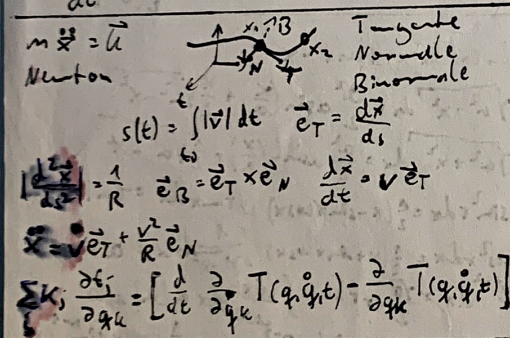 dt
m ẍ⃗ = K⃗
Newton
x₁ B x₂ N T
Tangente
Normale
Binormale
s(t) = ∫_{t₀}^{t} |v⃗| dt   e⃗_T = dx⃗/ds
|d²x⃗/ds²| = 1/R   e⃗_B = e⃗_T × e⃗_N   dx⃗/dt = v e⃗_T
ẍ⃗ = v̇ e⃗_T + v²/R e⃗_N
∑ K_j ∂f_j/∂q_k = [d/dt ∂/∂q̇_k T(q, q̇, t) − ∂/∂q_k T(q, q̇, t)]